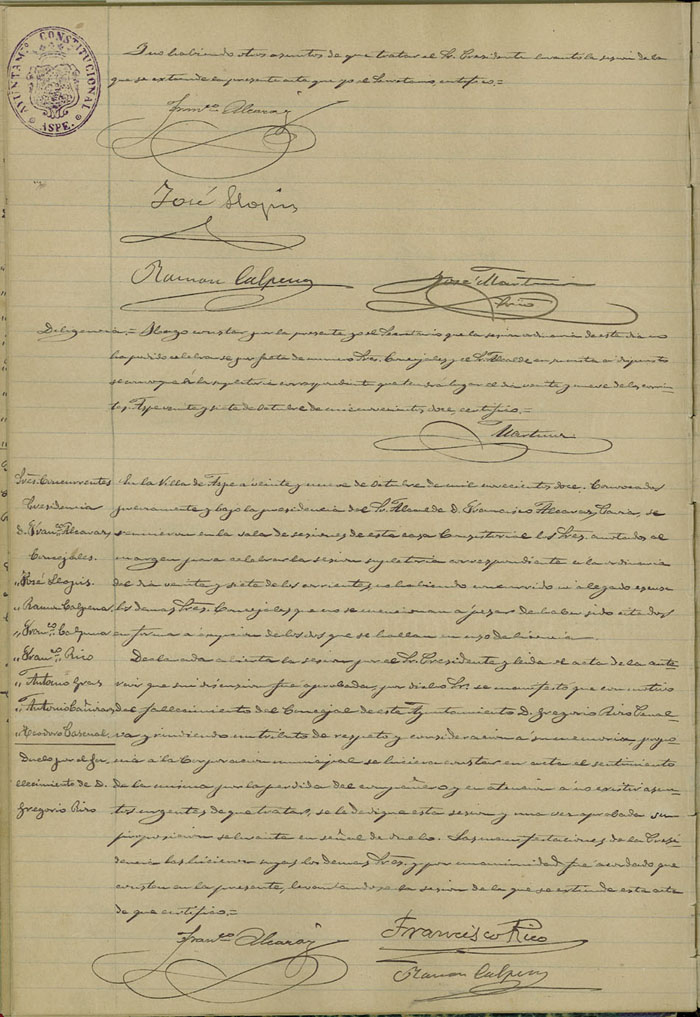 AYUNTAM.º CONSTITUCIONAL
ASPE.
Y no habiendo otros asuntos de que tratar el Sr. Presidente levantó la sesión de la
que se extiende la presente acta que yo el Secretario, certifico.=
Fran.co Alcaraz
José Llopis
Ramon Calpena
José Martinez
Diligencia.= Hago constar por la presente yo el Secretario que la sesion ordinaria de este dia no
ha podido celebrarse por falta de numero Sres. Concejales y el Sr. Alcalde en su vista ha dispuesto
se convoque á la supletoria correspondiente que tendrá lugar el dia veinte y nueve de los corrien-
tes. Aspe veinte y siete de Octubre de mil novecientos doce, certifico.=
Martinez
Sres. Concurrentes
Presidencia
D. Fran.co Alcaraz
Concejales.
„ José Llopis.
„ Ramon Calpena
„ Fran.co Calpena
„ Fran.co Rico
„ Antonio Gras
„ Antonio Cañizares
„ Teodoro Pascual
Duelo por el fa-
llecimiento de D.
Gregorio Rico
En la Villa de Aspe a veinte y nueve de Octubre de mil novecientos doce. Convocados
previamente y bajo la presidencia del Sr. Alcalde D. Francisco Alcaraz, se
reunieron en la sala de sesiones de esta casa Consistorial los Sres. anotados al
margen para celebrar la sesion supletoria correspondiente a la ordinaria
del dia veinte y siete de los corrientes, no habiendo concurrido ni alegado escusa
los demas Sres. Concejales que no se mencionan a pesar de haber sido citados
en forma a excepcion de los que se hallan en uso de licencia.
Declarada abierta la sesion por el Sr. Presidente y leida el acta de la ante-
rior que sin discusion fué aprobada, por dicho Sr. se manifestó que con motivo
del fallecimiento del Concejal de este Ayuntamiento D. Gregorio Rico
y rindiendo un tributo de respeto y consideracion á su memoria propo-
nia a la Corporacion municipal se hiciera constar en acta el sentimiento
de la misma por la perdida del compañero y en atencion a no existir asun-
tos urgentes de que tratar, se le dedique esta sesion y una vez aprobada su
proposicion se levante en señal de duelo. Las manifestaciones de la Presi-
dencia las hicieron suyas los demas Sres. y por unanimidad fué acordado que
consten en la presente, levantandose la sesion de la que se extiende esta acta
de que certifico.=
Fran.co Alcaraz
Francisco Rico
Ramon Calpena